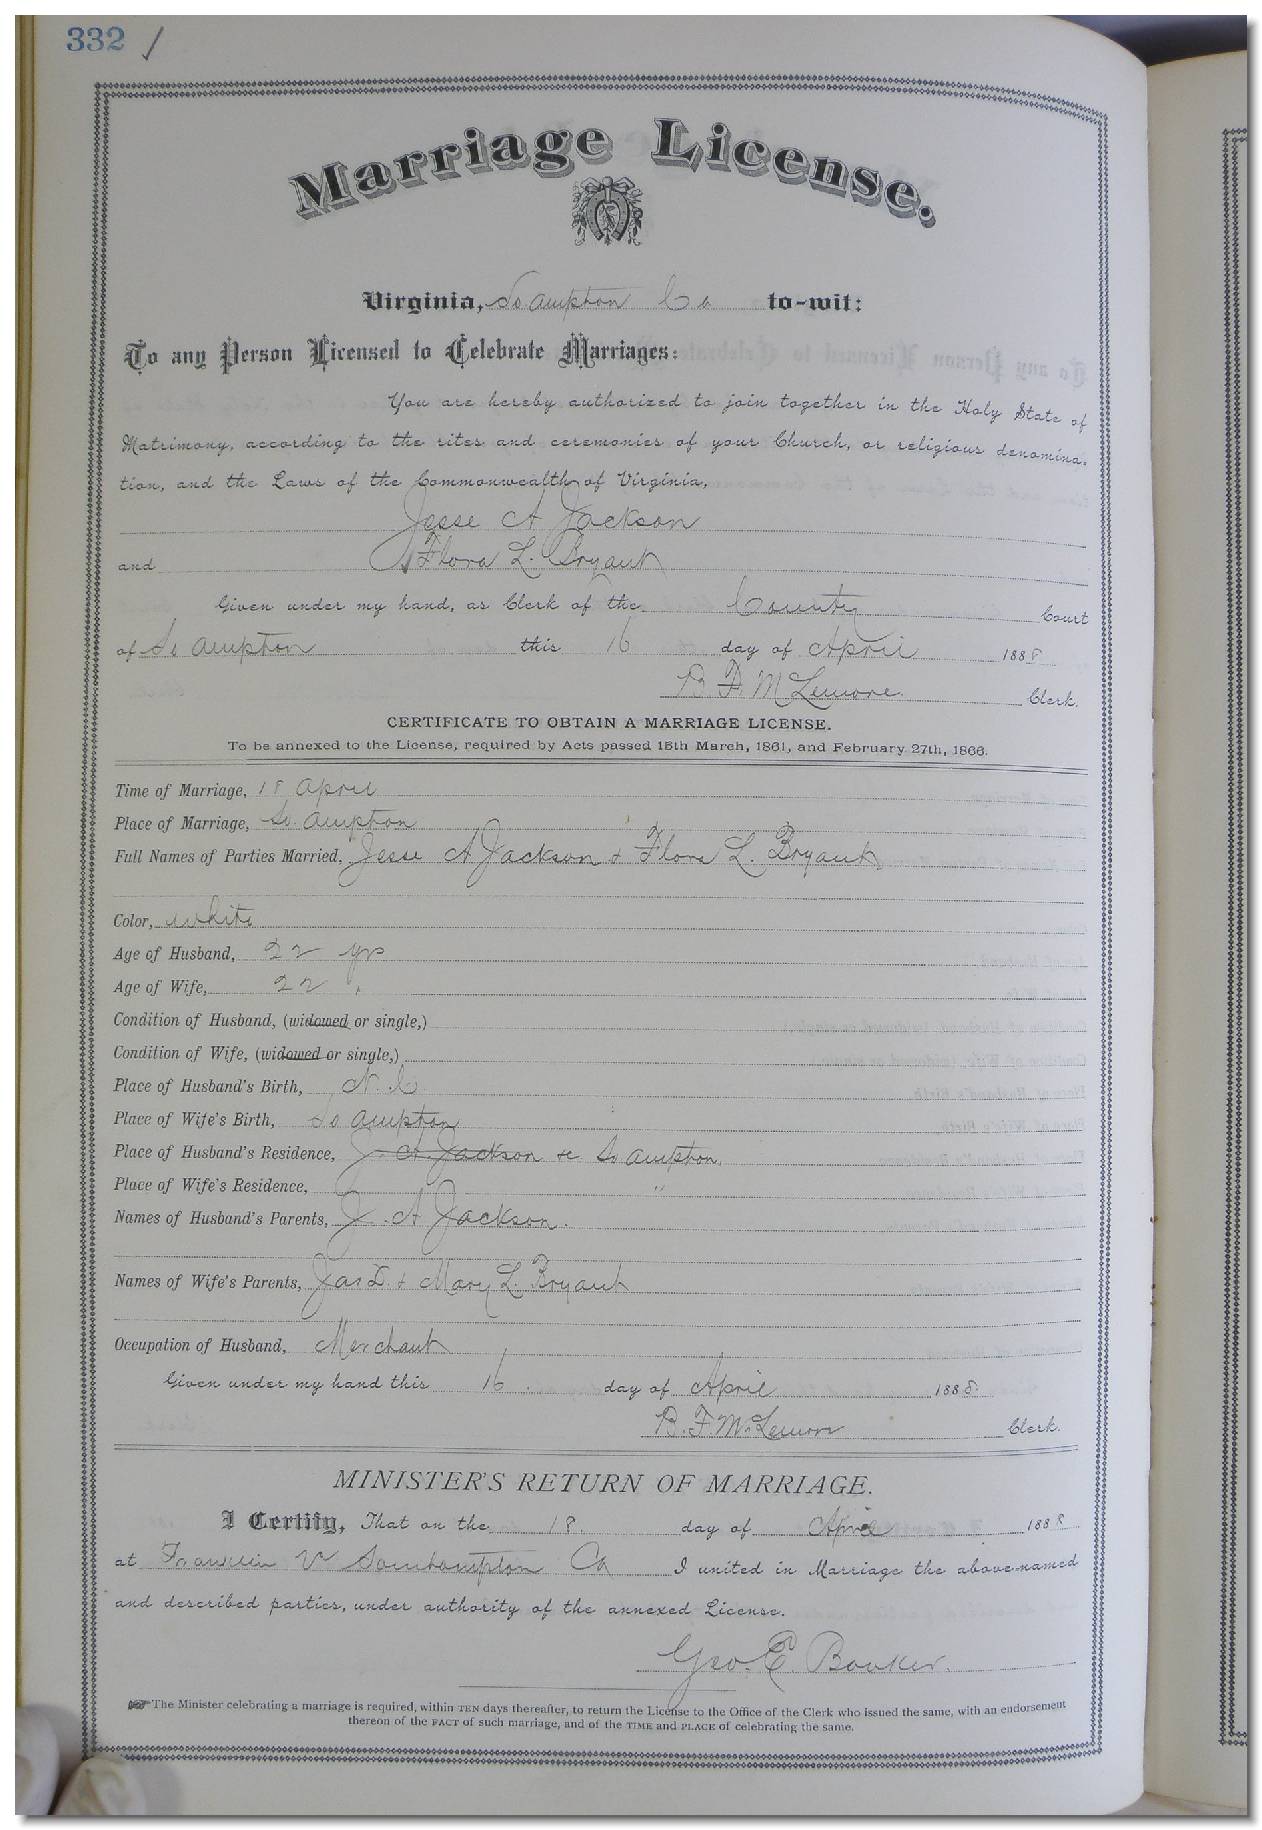 332
Marriage License.
Virginia, So ampton Co to-wit:
To any Person Licensed to Celebrate Marriages:
You are hereby authorized to join together in the Holy State of
Matrimony, according to the rites and ceremonies of your Church, or religious denomina-
tion, and the Laws of the Commonwealth of Virginia,
Jesse A Jackson
and Flora L. Bryant
Given under my hand, as Clerk of the County Court
of So ampton this 16 day of April 1888
B. F. McLemore. Clerk.
CERTIFICATE TO OBTAIN A MARRIAGE LICENSE.
To be annexed to the License, required by Acts passed 15th March, 1861, and February 27th, 1866.
Time of Marriage, 18 April
Place of Marriage, So. ampton
Full Names of Parties Married, Jesse A Jackson & Flora L. Bryant
Color, white
Age of Husband, 22 yrs
Age of Wife, 22 "
Condition of Husband, (widowed or single,)
Condition of Wife, (widowed or single,)
Place of Husband's Birth, N. C
Place of Wife's Birth, So ampton
Place of Husband's Residence, J. A Jackson & So ampton,
Place of Wife's Residence, "
Names of Husband's Parents, J. A Jackson.
Names of Wife's Parents, Jas D. & Mary L. Bryant
Occupation of Husband, Merchant
Given under my hand this 16. day of April 1888.
B. F. McLemore Clerk.
MINISTER'S RETURN OF MARRIAGE.
I Certify, That on the 18. day of April 1888
at Franklin Southampton Co I united in Marriage the above-named
and described parties, under authority of the annexed License.
Geo. E. Booker.
The Minister celebrating a marriage is required, within TEN days thereafter, to return the License to the Office of the Clerk who issued the same, with an endorsement
thereon of the FACT of such marriage, and of the TIME and PLACE of celebrating the same.